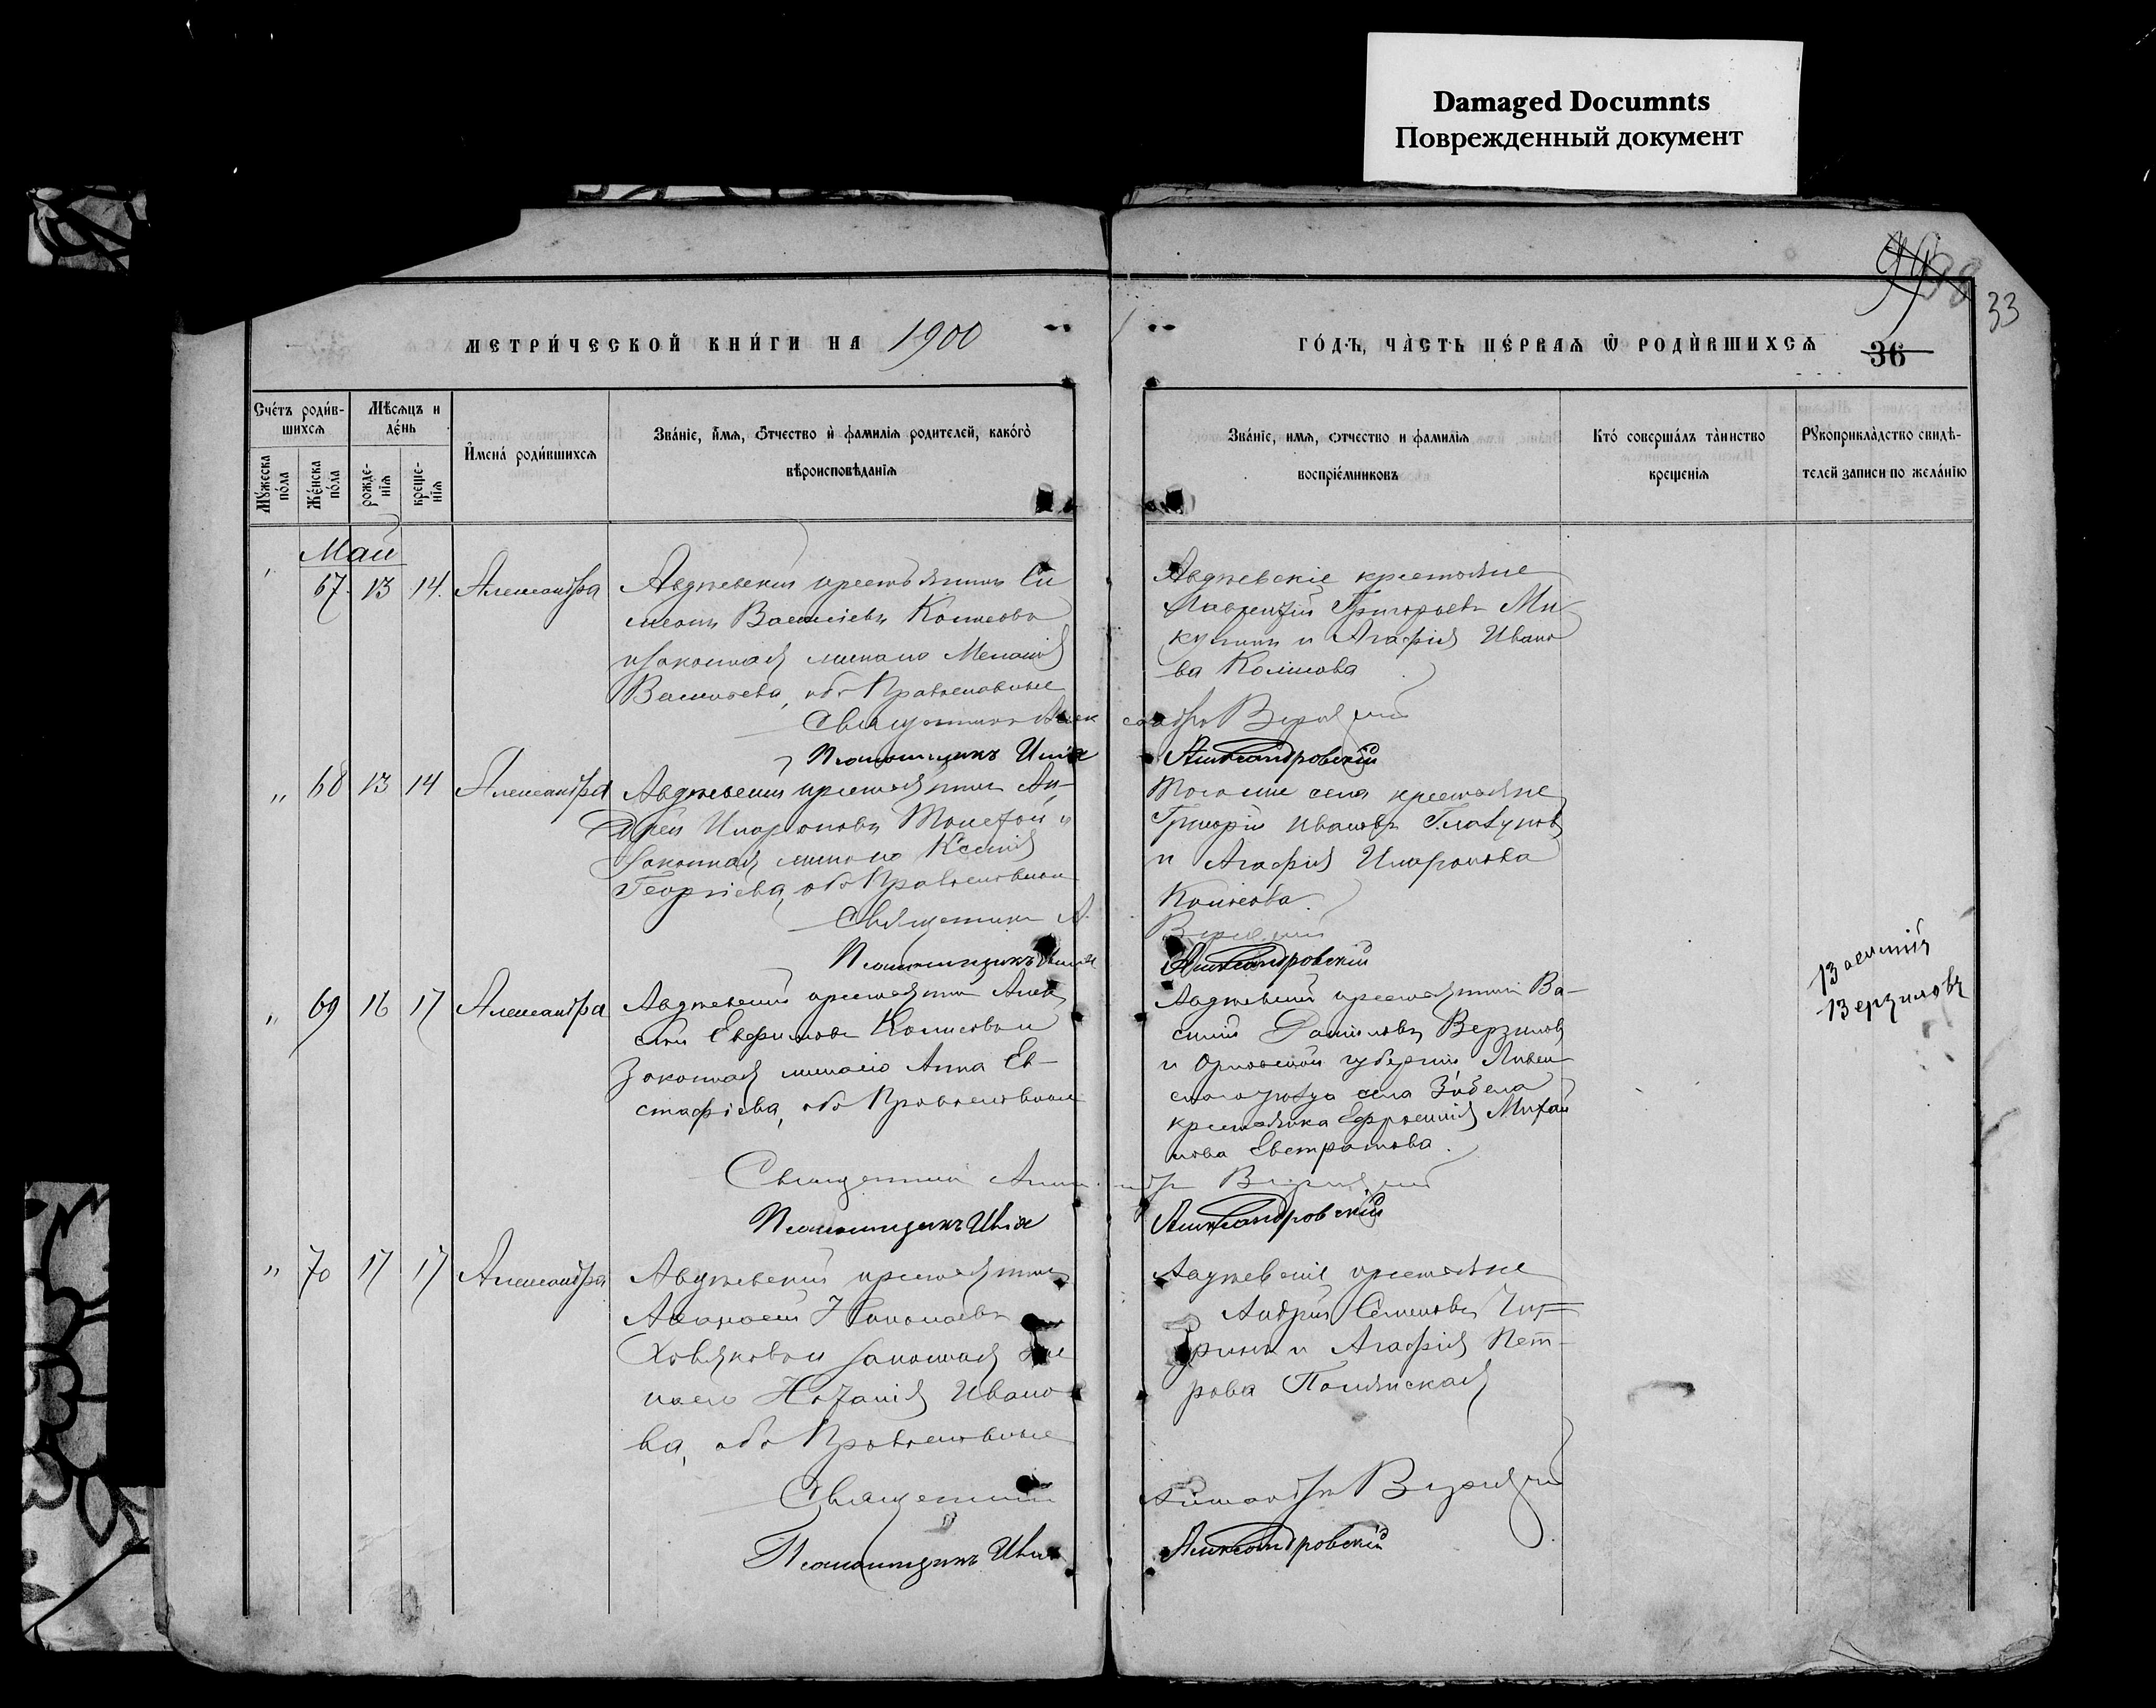 Damaged Documnts
Поврежденный документ
98
33
МЕТРИ́ЧЕСКОЙ КНИ́ГИ НА 1900
ГО́ДЪ, ЧА̀СТЬ ПЕ́РВАѦ Ѿ РОДИ́ВШИХСѦ
36
Сче́тъ роди́в-
шихсѧ
Мꙋ́жеска
по́ла
Же́нска
по́ла
Мѣ́сѧцъ и
де́нь
рожде-
нїѧ
креще-
нїѧ
И҆мена̀ роди́вшихсѧ
Зва́нїе, и҆́мѧ, ѻ҆́тчество и҆ фамилїѧ родителей, како́гѡ
вѣроисповѣданїѧ
Зва́нїе, имѧ, отчество и фамилїѧ
воспрїе́мниковъ
Кто́ соверша́лъ та̀инство
крещенїѧ
Рꙋкоприкла̀дство свидѣ-
телей записи по жела́нїю
Май
67. 13 14. Александра
Авдѣевскій крестьянинъ Си
меонъ Васильевъ Колисовъ
и законная жена его Меланія
Васильева, оба Православные
Авдѣевскіе крестьяне
Лаврентій Григорьевъ Ми-
кулинъ и Агафія Ивано
ва Колисова
Священникъ Алек сандръ
Псаломщикъ Илія Александровскій
" 68 13 14 Александра
Авдѣевскій крестьянинъ Ан-
дрей Иларіоновъ и
законная жена его Ксенія
Георгіева, оба Православные
Того же села крестьяне
Григорій Ивановъ Глазуновъ
и Агафія Иларіонова
Колисова.
Священникъ А.
Псаломщикъ Илія Александровскій
" 69 16 17 Александра
Авдѣевскій крестьянинъ Алек
сѣй Ефимовъ Колисовъ и
законная жена его Анна Ев-
стафіева, оба Православные
Авдѣевскій крестьянинъ Ва-
силій Даниловъ Верзиловъ
и Орловской губерніи Ливен
скаго уѣзда села
крестьянка Ефросинія Михай
лова Евстратова.
Василій
Верзиловъ
Священникъ Александръ
Псаломщикъ Илія Александровскій
" 70 17 17 Александра
Авдѣевскій крестьянинъ
Николаевъ
Ховяковъ и законная же
на его Наталія Ивано
ва, оба Православные
Авдѣевскіе крестьяне
Андрей Семеновъ
и Агафія Пет-
рова
Священникъ Александръ
Псаломщикъ Илія Александровскій